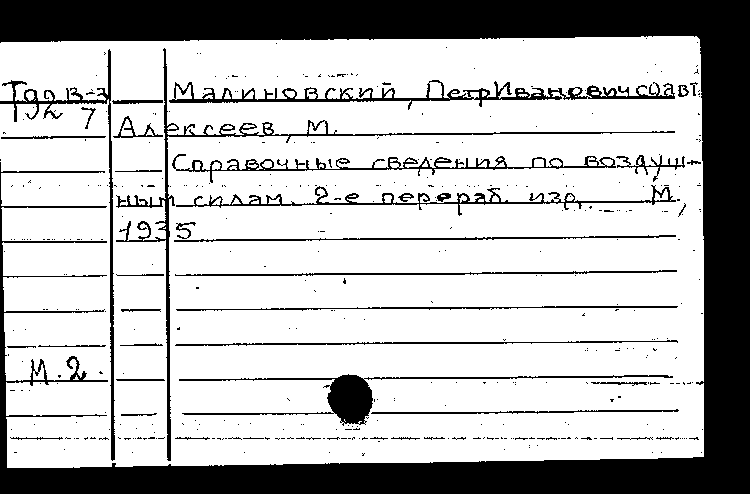 Т92 В-3 Малиновский, Петр Иванович соавт
7 Алексеев, М.
Справочные сведения по воздуш-
ным силам. 2-е перераб. изд. М.,
1935
М.2.